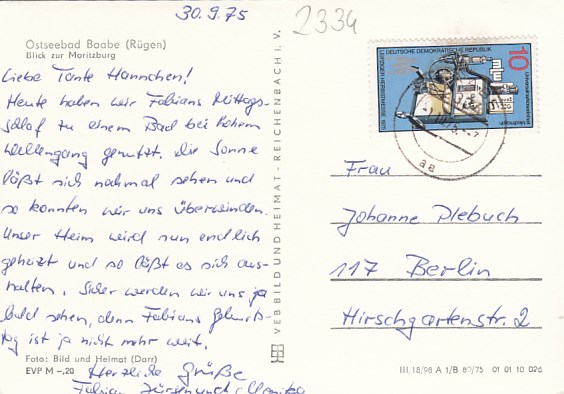 30.9.75
2334
Ostseebad Baabe (Rügen)
Blick zur Moritzburg
Liebe Tante Hannchen!
Heute haben wir Fabians Mittags-
schlaf zu einem Bad bei hohem
Wellengang genutzt. Die Sonne
läßt sich nochmal sehen und
so konnten wir uns überwinden.
Unser Heim wird nun endlich
geheizt und so läßt es sich aus-
halten. Sicher werden wir uns ja
bald sehen, denn Fabians Geburts-
tag ist ja nicht mehr weit.
Herzliche Grüße
Fabian, Jürgen und Monika
Foto: Bild und Heimat (Darr)
EVP M –,20
VEB BILD UND HEIMAT · REICHENBACH i. V.
DEUTSCHE DEMOKRATISCHE REPUBLIK
LEIPZIGER HERBSTMESSE 1975
10
aa
Frau
Johanne Plebuch
117 Berlin
Hirschgartenstr. 2
III/18/98 A 1/B 80/75 01 01 10 026